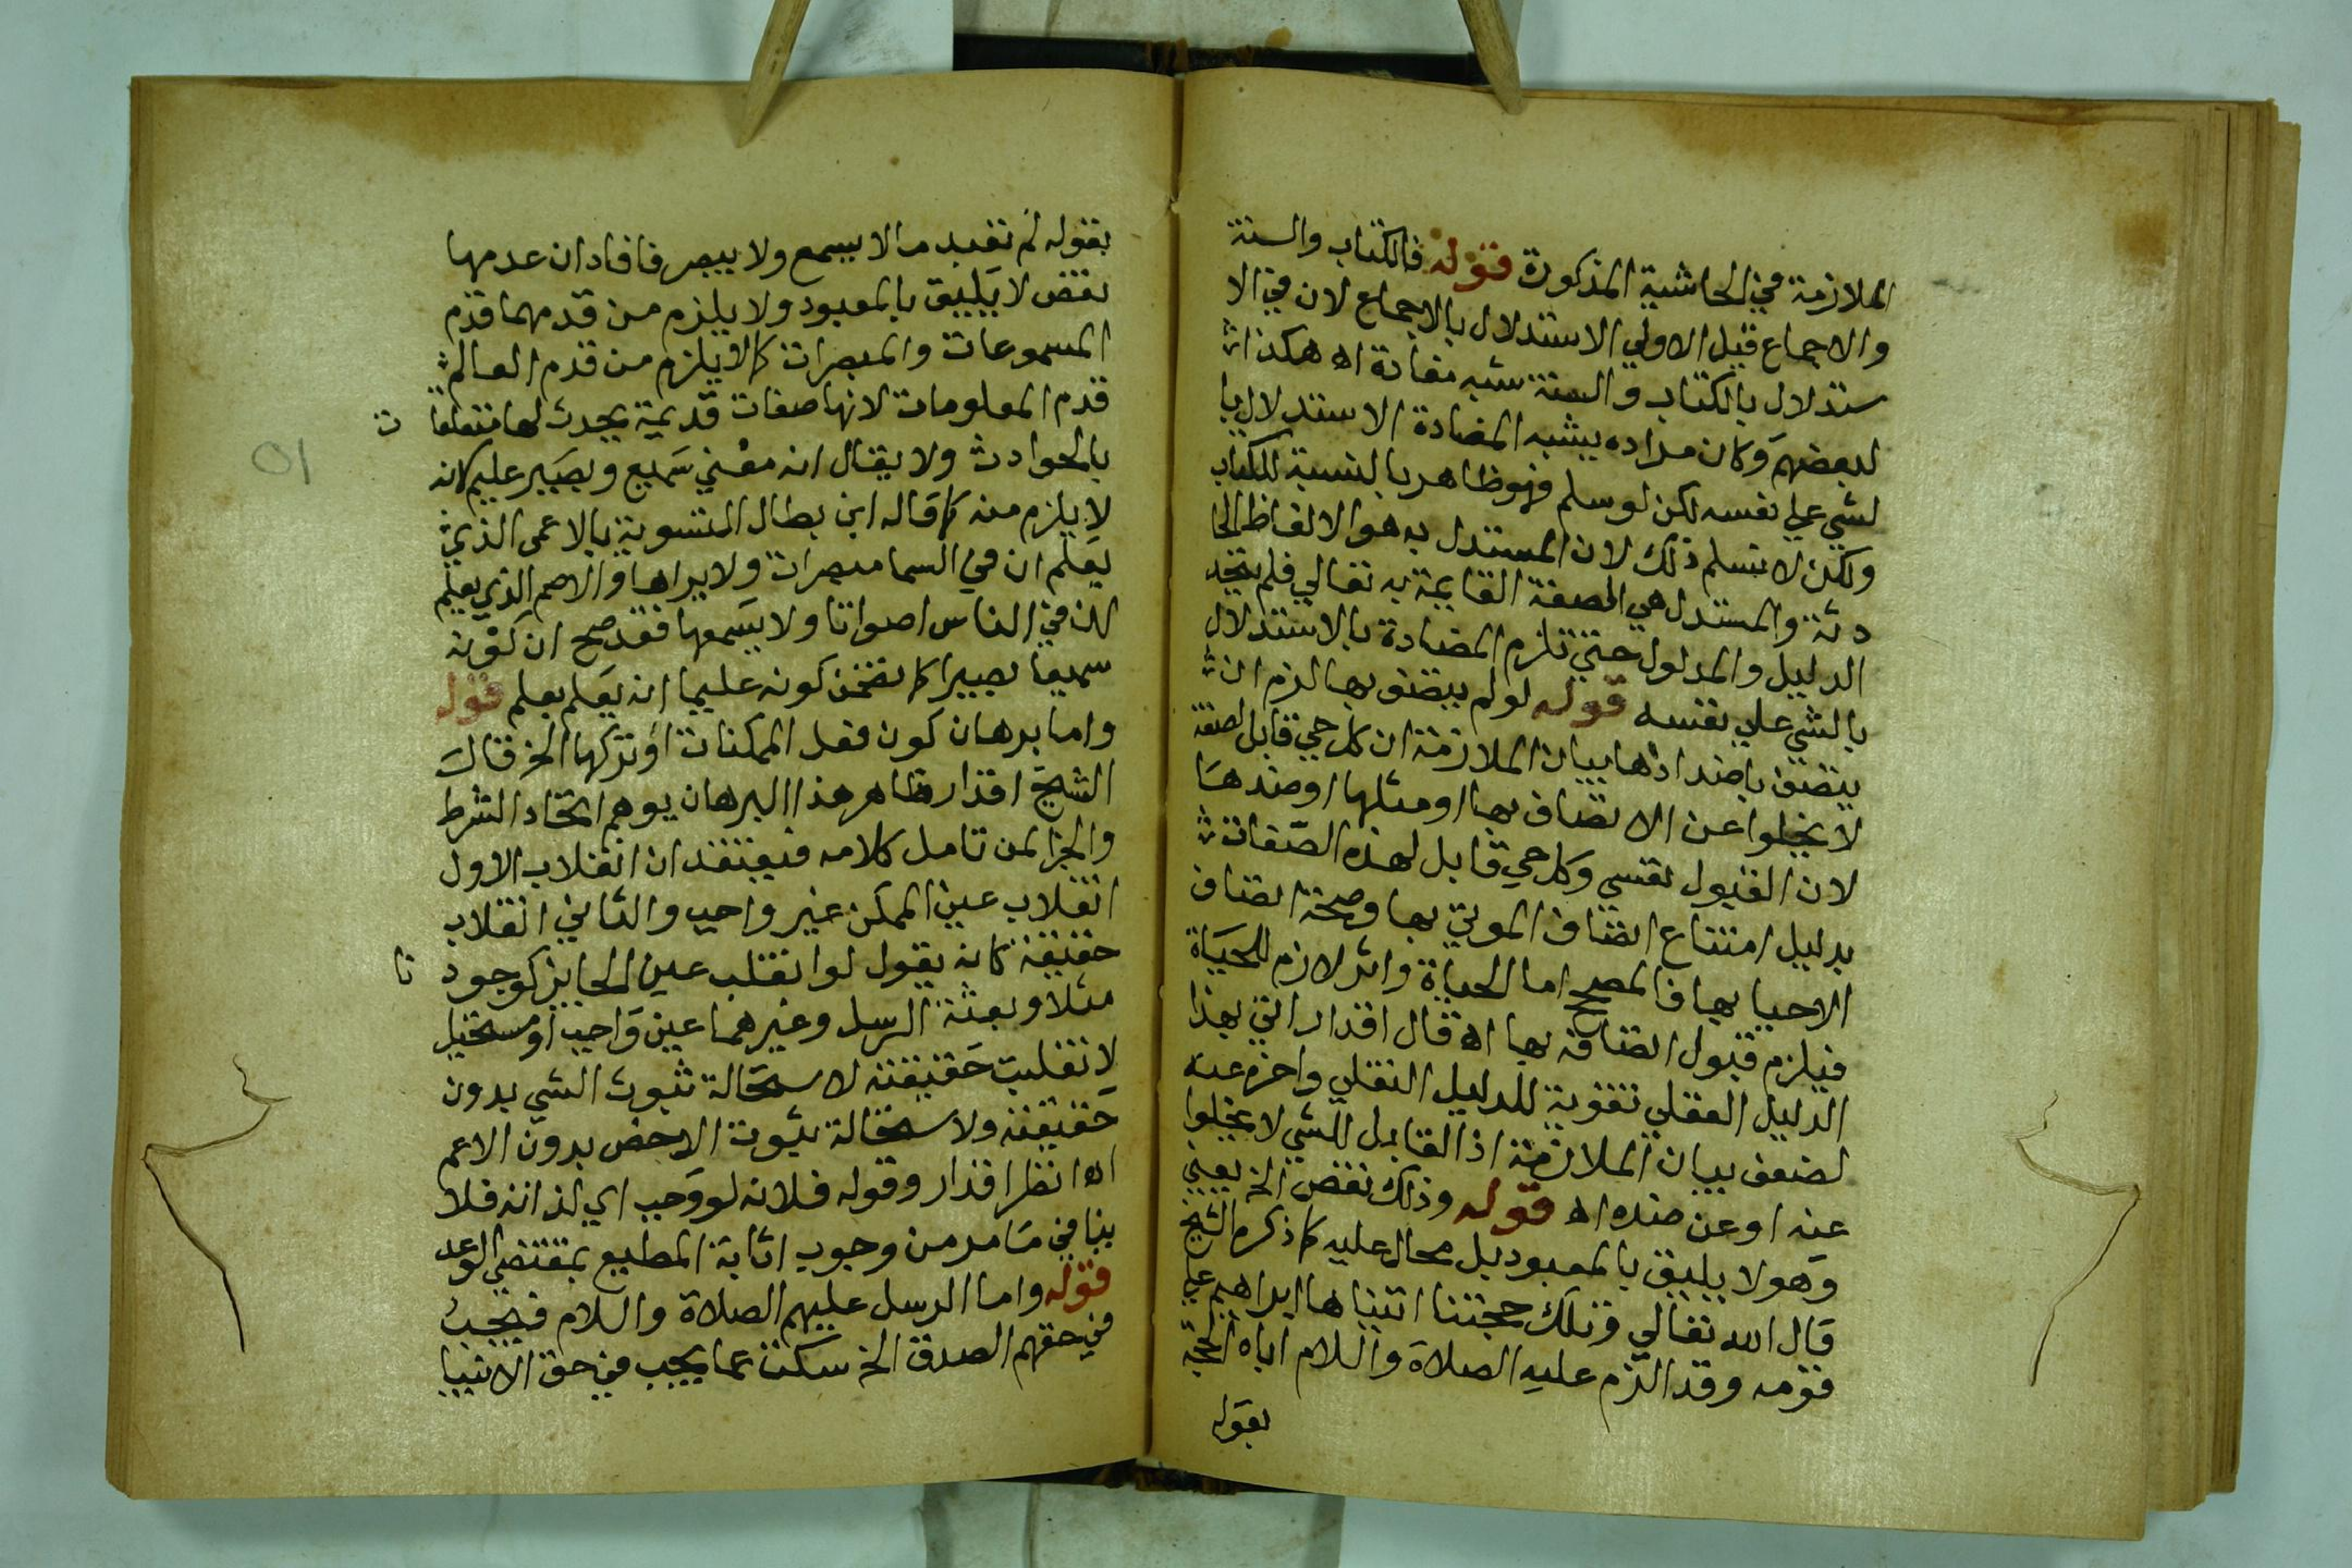 الملازمة في الحاشية المذكورة قوله فالكتاب والسنة
والاجماع قيل الاولي الاستدلال بالاجماع لان في الا
ستدلال بالكتاب والسنة شبه مضادة اه هكذا
لبعضهم وكان مراده يشبه المضادة الاستدلال با
لشي علي نفسه لكن لو سلم فهو ظاهر بالنسبة للكتاب
ولكن لا نسلم ذلك لان المستدل به هو الالفاظ الحا
دثة والمستدل هي الصفة القايمة به تعالي فلم يتحد
الدليل والمدلول حتي تلزم المضادة بالاستدلال
بالشي علي نفسه قوله لو لم يتصف بها لزم ان
يتصف باضدادها بيان الملازمة ان كل حي قابل لصفة
لا يخلوا عن الاتصاف بها او مثلها او ضدها
لان القبول نفسي وكل حي قابل لهذه الصفات
بدليل امتناع اتصاف الموتي بها وصحة اتصاف
الاحيا بها فالمصحح اما الحياة واثر لازم للحياة
فيلزم قبول اتصافه بها اه قال اقدار اتي بهذا
الدليل العقلي تقوية للدليل النقلي واخره عنه
لضعف بيان الملازمة اذ القابل للشي لا يخلوا
عنه او عن ضده اه قوله وذلك نقض الخ يعني
وهو لا يليق بالمعبود بل محال عليه كما ذكره الشيخ
قال الله تعالي وتلك حجتنا اتيناها ابراهيم علي
قومه وقد الزم عليه الصلاة والسلام اباه الحجة
بقوله
بقوله لم تعبد ما لا يسمع ولا يبصر فافاد ان عدمها
نقض لا يليق بالمعبود ولا يلزم من قدمهما قدم
المسموعات والمبصرات كما لا يلزم من قدم العالم
قدم المعلومات لانها صفات قديمة يحدث لها متعلقا
ت
بالحوادث ولا يقال انه معني سميع وبصير عليم لانه
لا يلزم منه كما قاله ابن بطال التسوية بالاعمى الذي
يعلم ان في السما مبصرات ولا يراها والاصم الذي يعلم
ان في الناس اصواتا ولا يسمعها فقد صح ان كونه
سميعا بصيرا كما تضمن كونه عليما انه يعلم بعلم قوله
واما برهان كون فعل الممكنات او تركها الخ قال
الشيخ اقدار ظاهر هذا البرهان يوهم اتحاد الشرط
والجزا لمن تامل كلامه فيعتقد ان انقلاب الاول
انقلاب عين الممكن عين واجب والثاني انقلاب
حقيقة كانه يقول لو انقلب عين الجايز كوجود
نا
مثلا وبعثة الرسل وغيرهما عين واجب او مستحيل
لانقلبت حقيقته لاستحالة ثبوت الشي بدون
حقيقته ولاستحالة ثبوت الاخص بدون الاعم
اه انظر اقدار وقوله فلانه لو وجب اي لذاته فلا
ينافي ما مر من وجوب اثابة المطيع بمقتضي الوعد
قوله واما الرسل عليهم الصلاة والسلام فيجب
في حقهم الصدق الخ سكت عما يجب في حق الانبيا
٥١